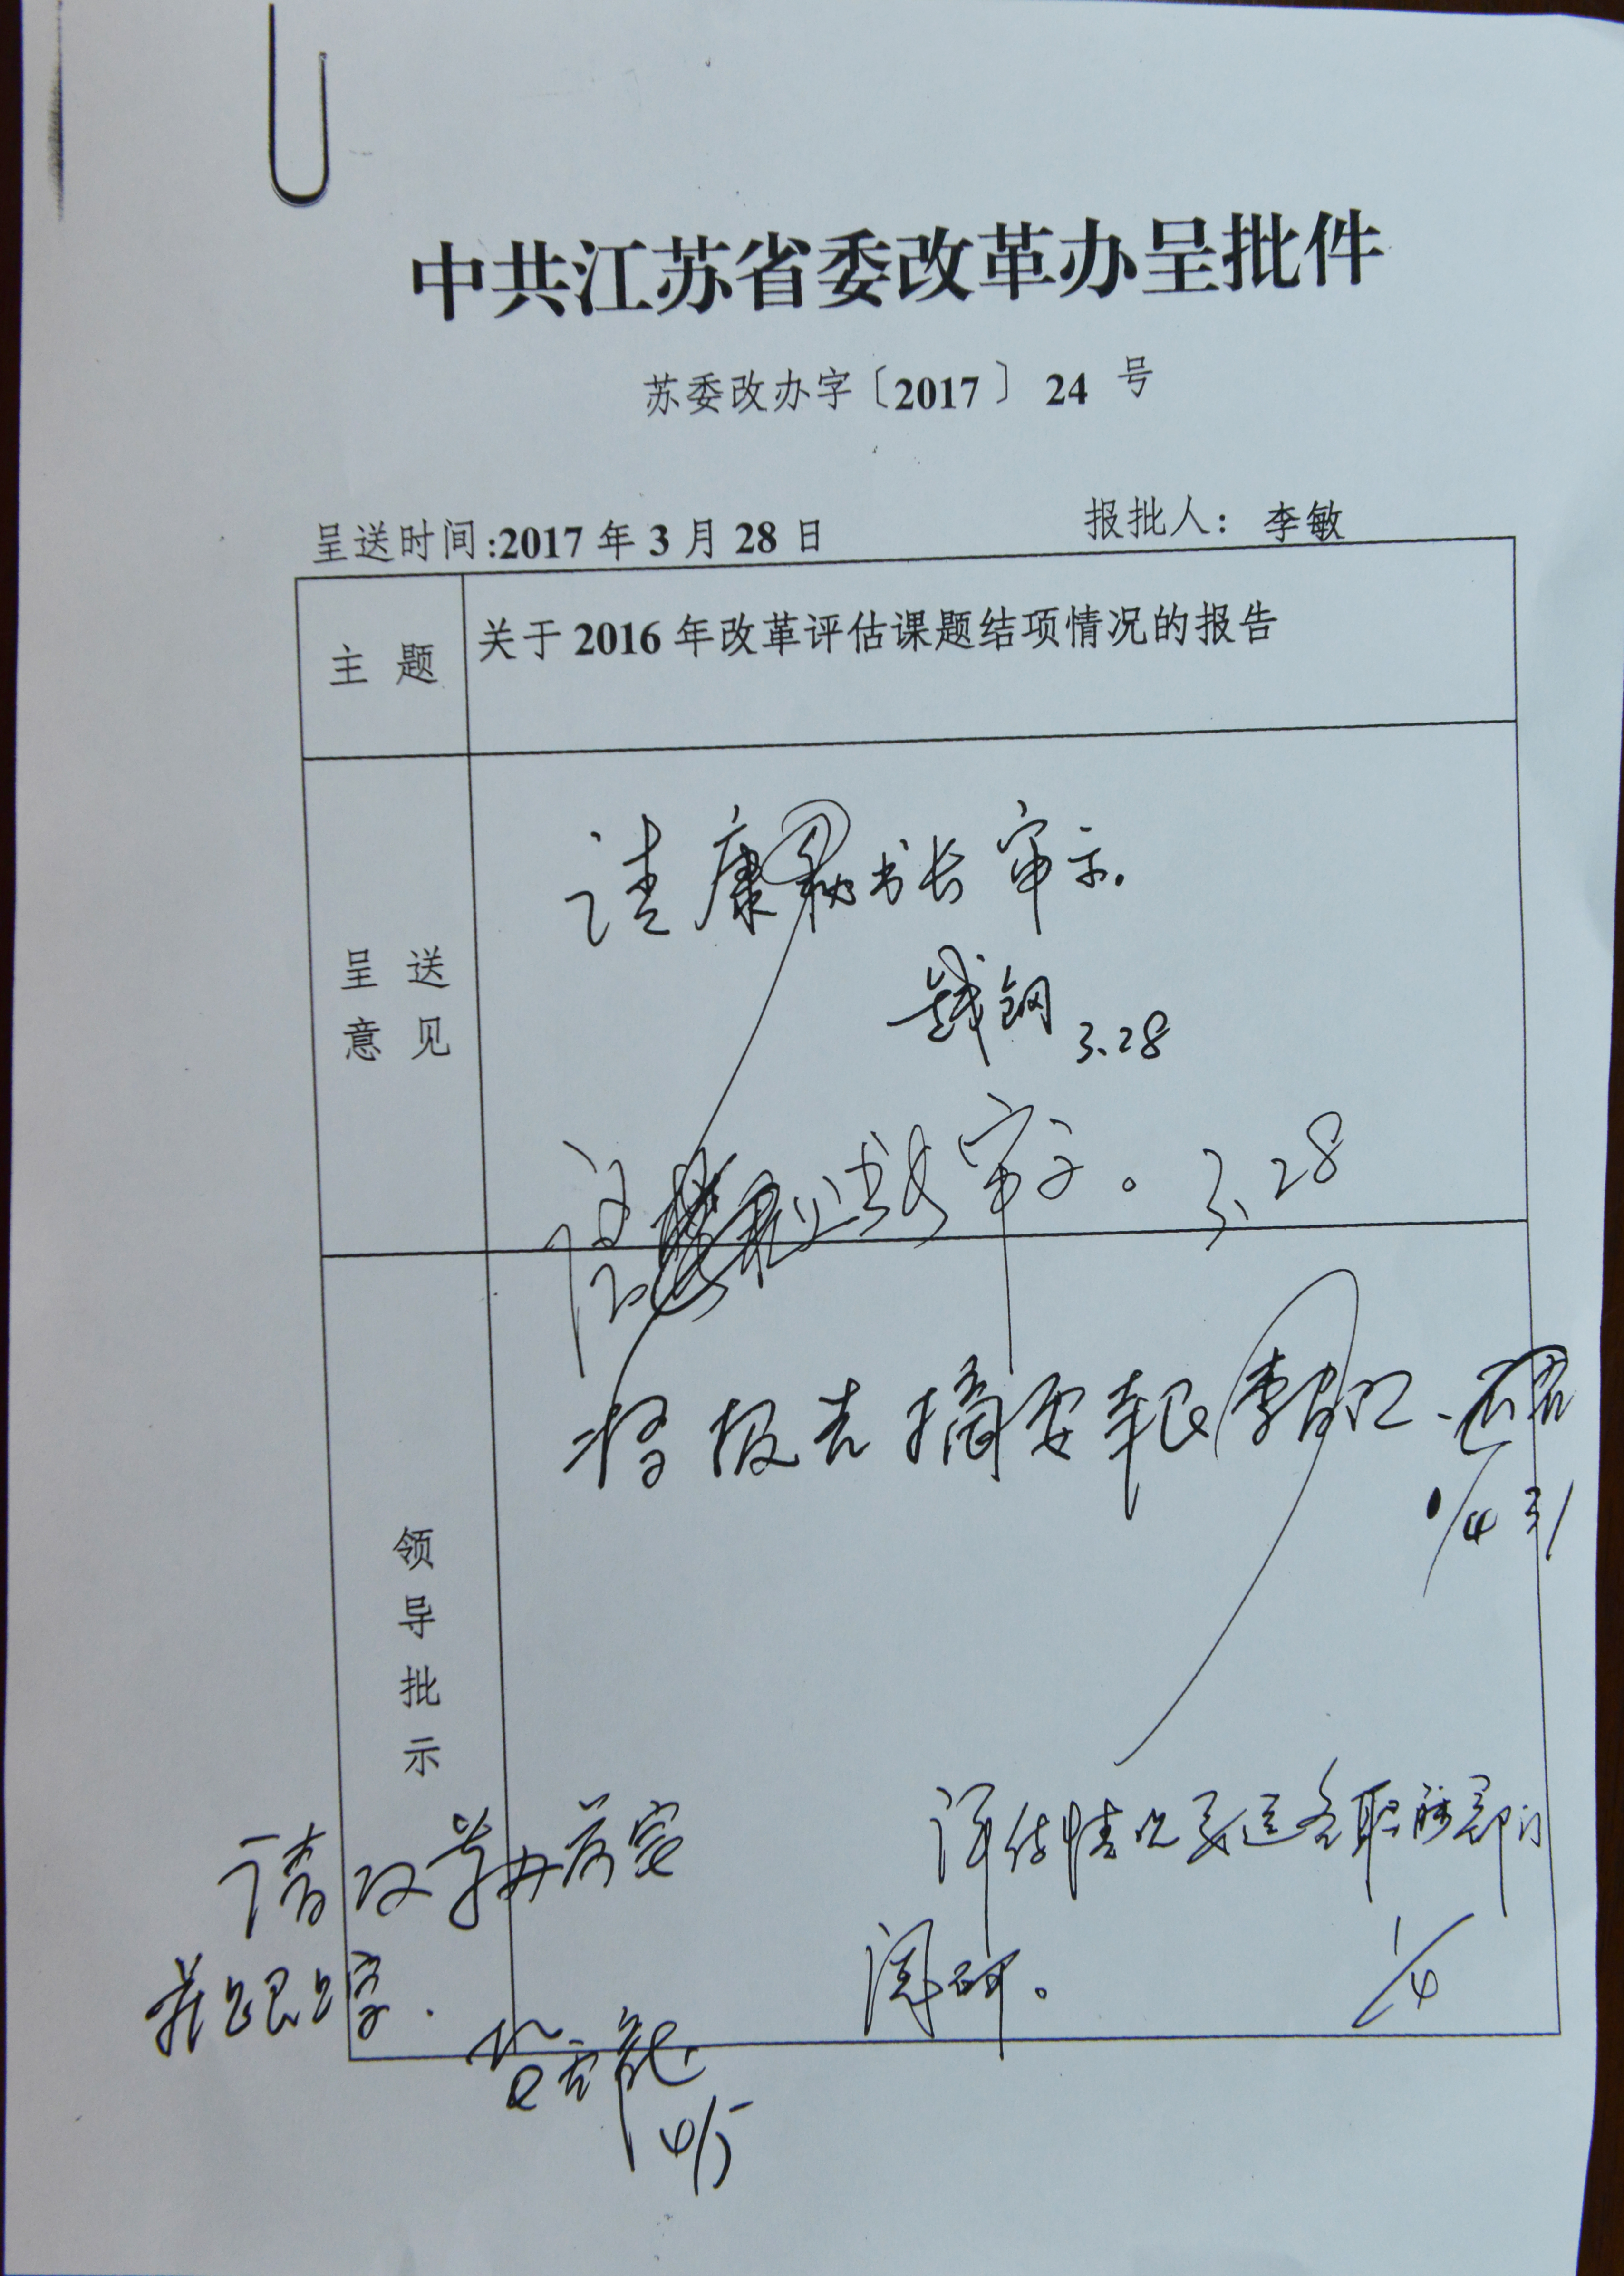 中共江苏省委改革办呈批件
苏委改办字〔2017〕 24 号
呈送时间:2017 年 3 月 28 日
报批人： 李敏
主 题
关于 2016 年改革评估课题结项情况的报告
呈 送
意 见
请康秘书长审示.
钱钢 3.28
审示。 3.28
领
导
批
示
将报告摘要报李书记
评估情况要送各职能部门
阅研。 1/4
请改革办落实
并跟踪.